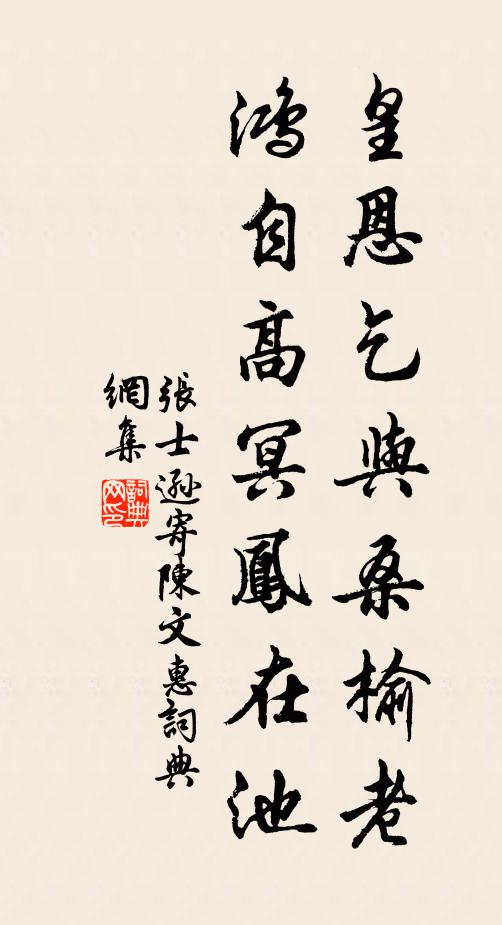 皇恩乞與桑榆老
鴻自高冥鳳在池
張士遜寄陳文惠詞典
網集
詞典
网印